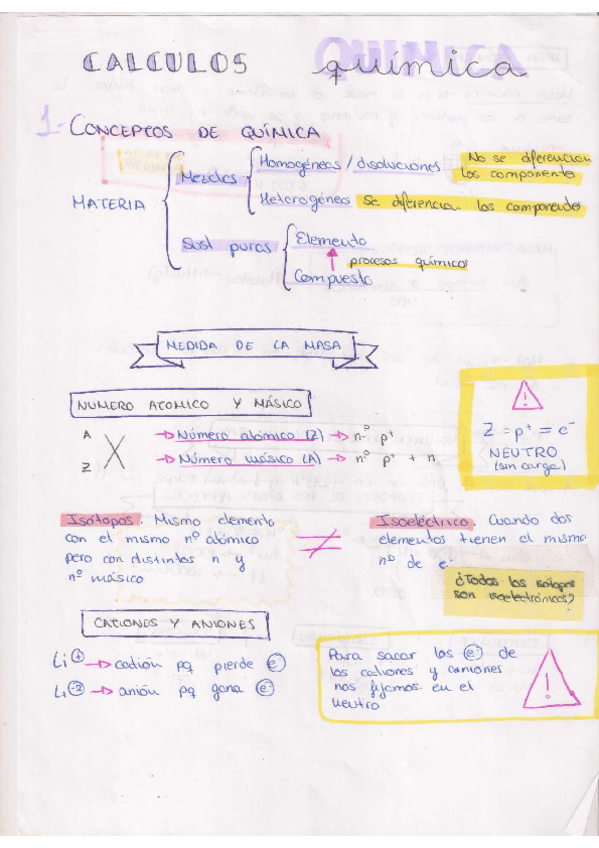 CALCULOS química
QUIMICA
1- CONCEPTOS DE QUÍMICA
MATERIA
Mezclas
Homogéneas / disoluciones No se diferencian los componentes
Heterogéneas Se diferencian los componentes
Sust puras
Elemento
procesos químicos
Compuesto
MEDIDA DE LA MASA
NUMERO ATOMICO Y MÁSICO
A
Z
X
→ Número atómico (Z) → nº p+
→ Número másico (A) → nº p+ + n
Z = p+ = e-
NEUTRO
(sin carga)
Isótopos. Mismo elemento
con el mismo nº atómico
pero con distintos n y
nº másico
≠
Isoeléctrico. Cuando dos
elementos tienen el mismo
nº de e-
¿Todos los isótopos
son isoelectrónicos?
CATIONES Y ANIONES
Li+ → catión pq pierde e-
Li-2 → anión pq gana e-
Para sacar los e- de
los cationes y aniones
nos fijamos en el
neutro